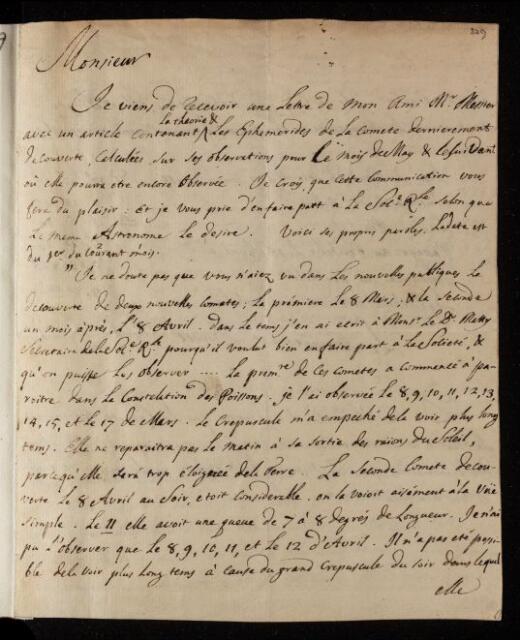 229
Monsieur
Je viens de recevoir une Lettre de mon Ami Mr. Messier
la theorie &
avec un article contenant ^ Les Ephemerides de la Comete dernierement
decouverte, Calculées sur ses observations pour le mois de May & le suivant
où elle pourra etre encore observée. Je crois, que cette communication vous
fera du plaisir: et je vous prie d'en faire part à La Soc.é R.le selon que
Le meme Astronome le desire. Voici ses propres paroles. La date est
du 1er. du Courant mois.
" Je ne doute pas que vous n'aiez vu dans les nouvelles publiques le
decouverte de deux nouvelles cometes; le première le 8 Mars; & la seconde
un mois après, L'8 Avril. Dans le tems j'en ai ecrit à Monsr. Le Dr. Matty
Secretaire de la Soc.é R.le pourqu'il voulut bien en faire part à la Societé, &
qu'on puisse les observer .... La premre. de ces cometes a commencé à pa-
roitre dans la Constellation des Poissons. je l'ai observée le 8, 9, 10, 11, 12, 13,
14, 15, et le 17 de Mars. Le Crepuscule m'a empeché de la voir plus long
tems. Elle ne reparaitra pas le matin à sa sortie des raions du Soleil,
parcequ'elle sera trop éloignée de la Terre. La seconde Comete decou-
verte Le 8 Avril au soir, etoit considerable. on la voioit aisément à la Vüe
simple. Le 11 elle avoit une queue de 7 à 8 degrés de Longueur. Je n'ai
pu l'observer que le 8, 9, 10, 11, et le 12 d'Avril. Il n'a pas eté possi-
ble de la voir plus long tems à cause du grand Crepuscule du soir dans lequel
elle